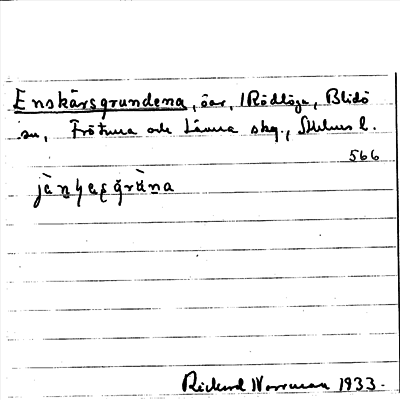 Enskärsgrundena, öar, i Rödlöga, Blidö
sn, Frötuna och Länna skg., Sthlms l.
566
Rickard Norrman 1933.